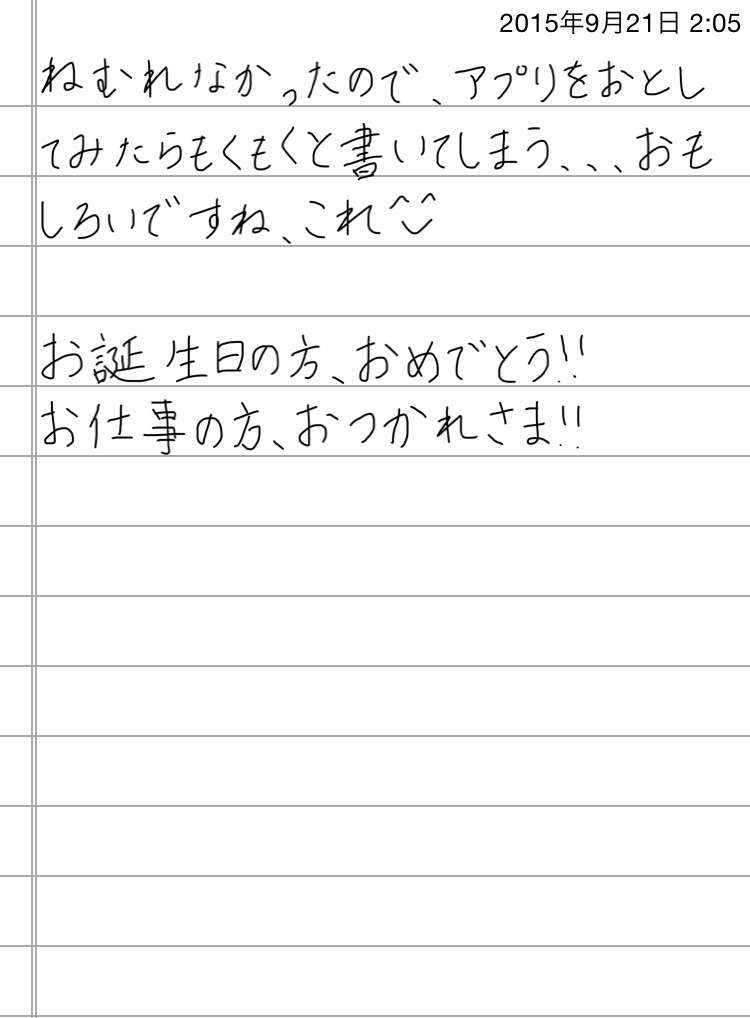 2015年9月21日 2:05
ねむれなかったので、アプリをおとし
てみたらもくもくと書いてしまう、、、おも
しろいですね、これ^⌣^
お誕生日の方、おめでとう!!
お仕事の方、おつかれさま!!